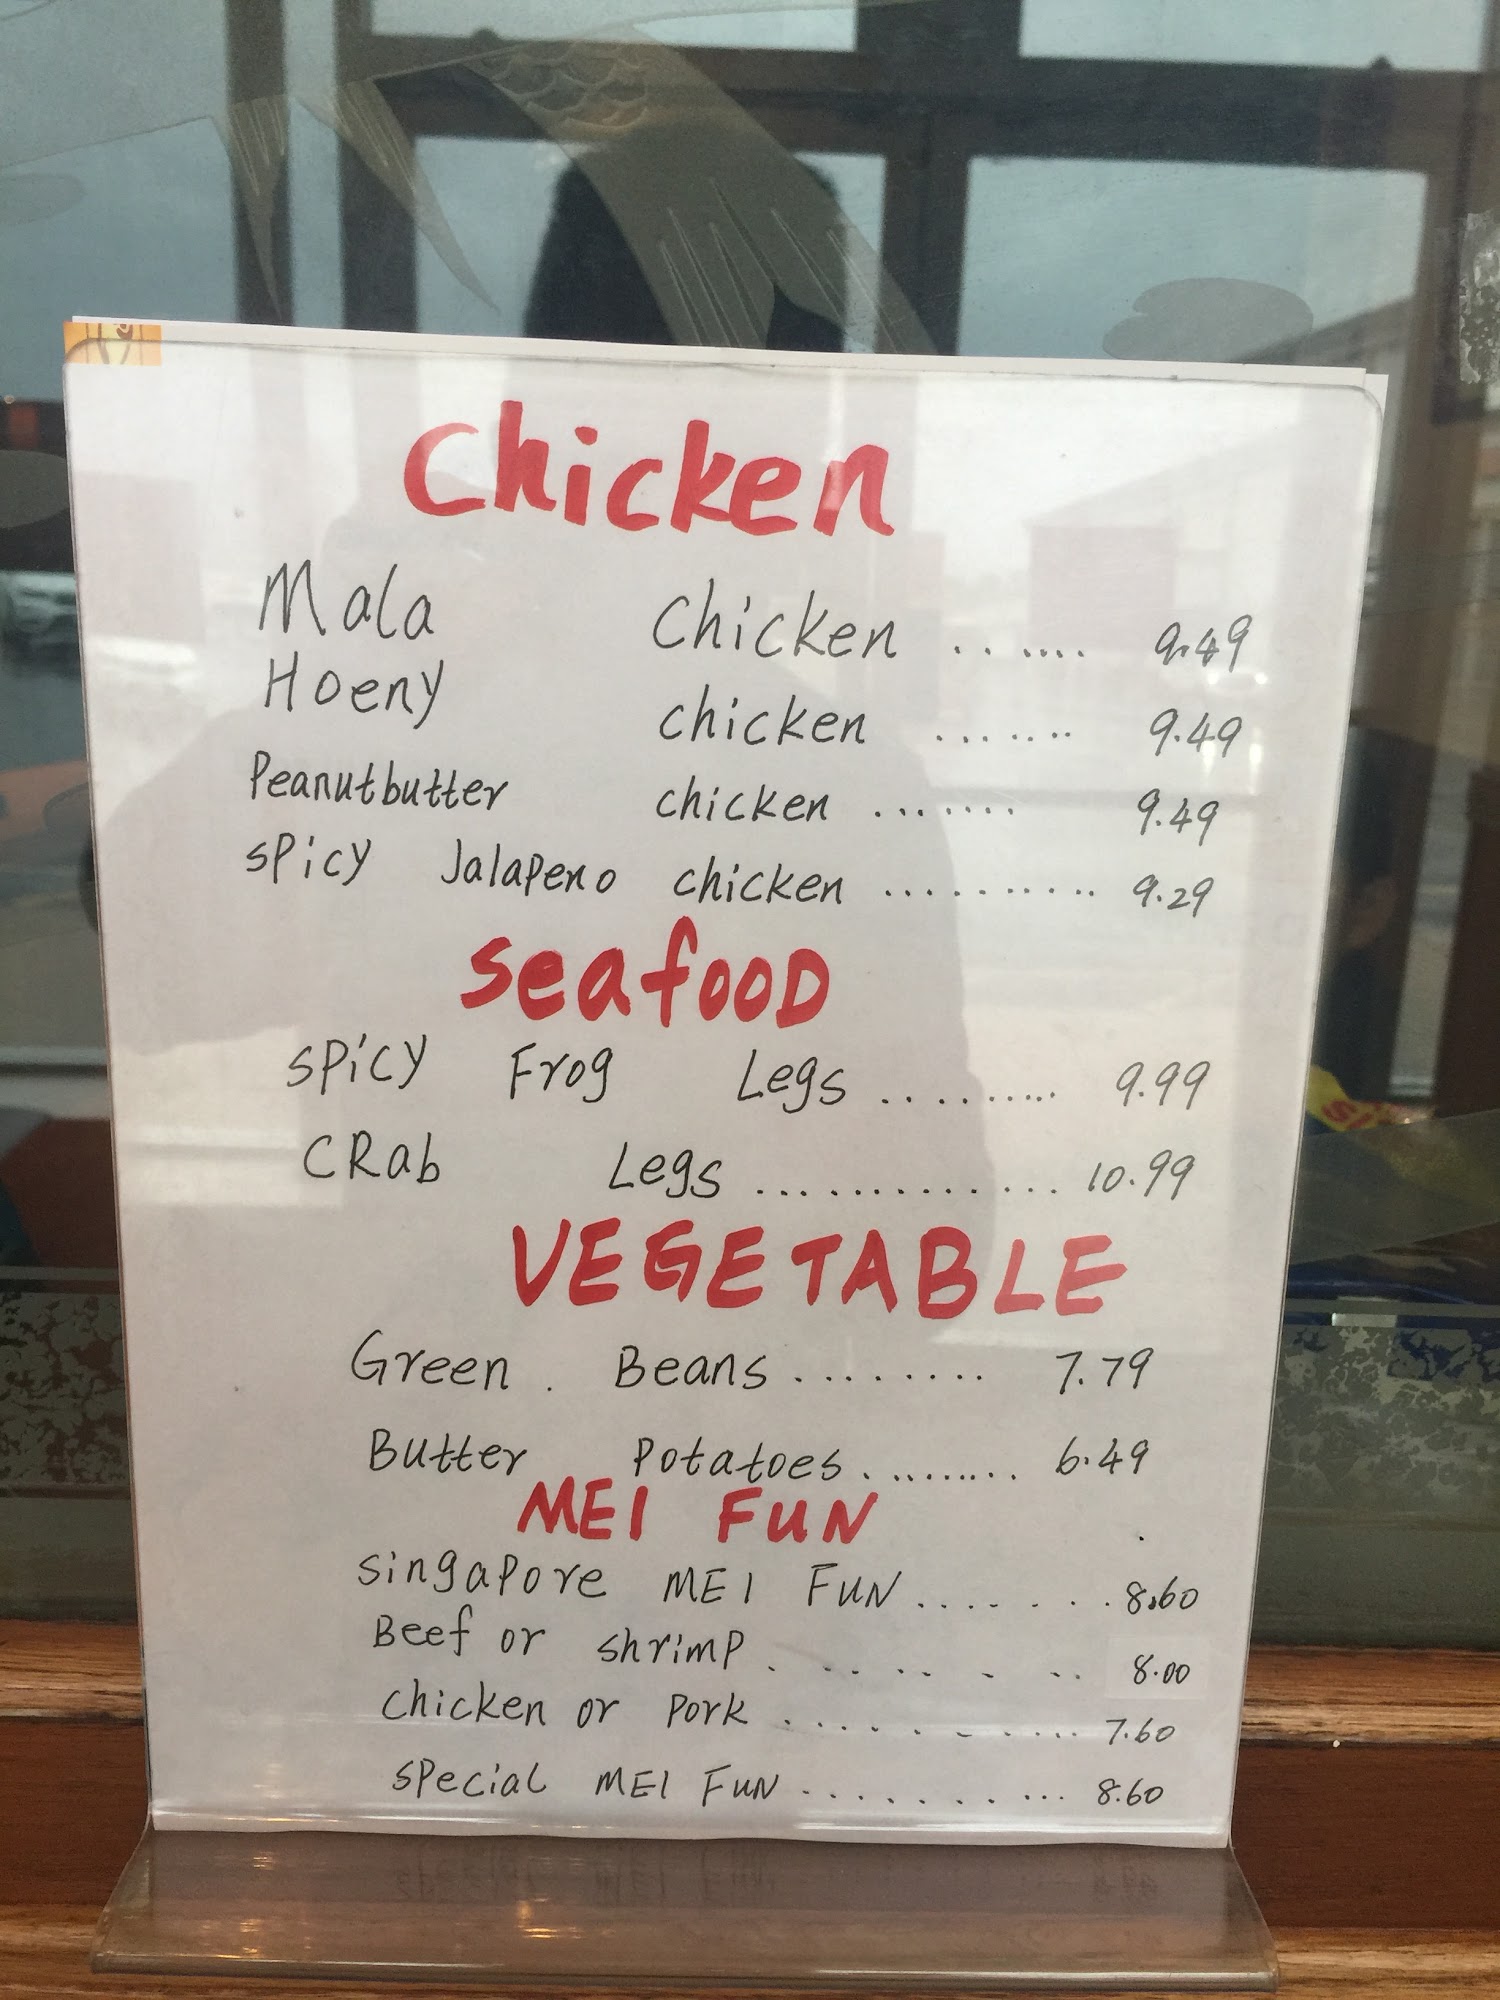 Chicken
Mala Chicken ....... 9.49
Hoeny chicken ....... 9.49
Peanutbutter chicken ....... 9.49
spicy Jalapeno chicken .......... 9.29
seafooD
spicy Frog Legs ......... 9.99
CRab Legs .............. 10.99
VEGETABLE
Green . Beans ........ 7.79
Butter Potatoes ........ 6.49
MEI FUN
singapore MEI FUN ....... 8.60
Beef or shrimp ........ 8.00
chicken or Pork .......... 7.60
special MEI FUN .......... 8.60